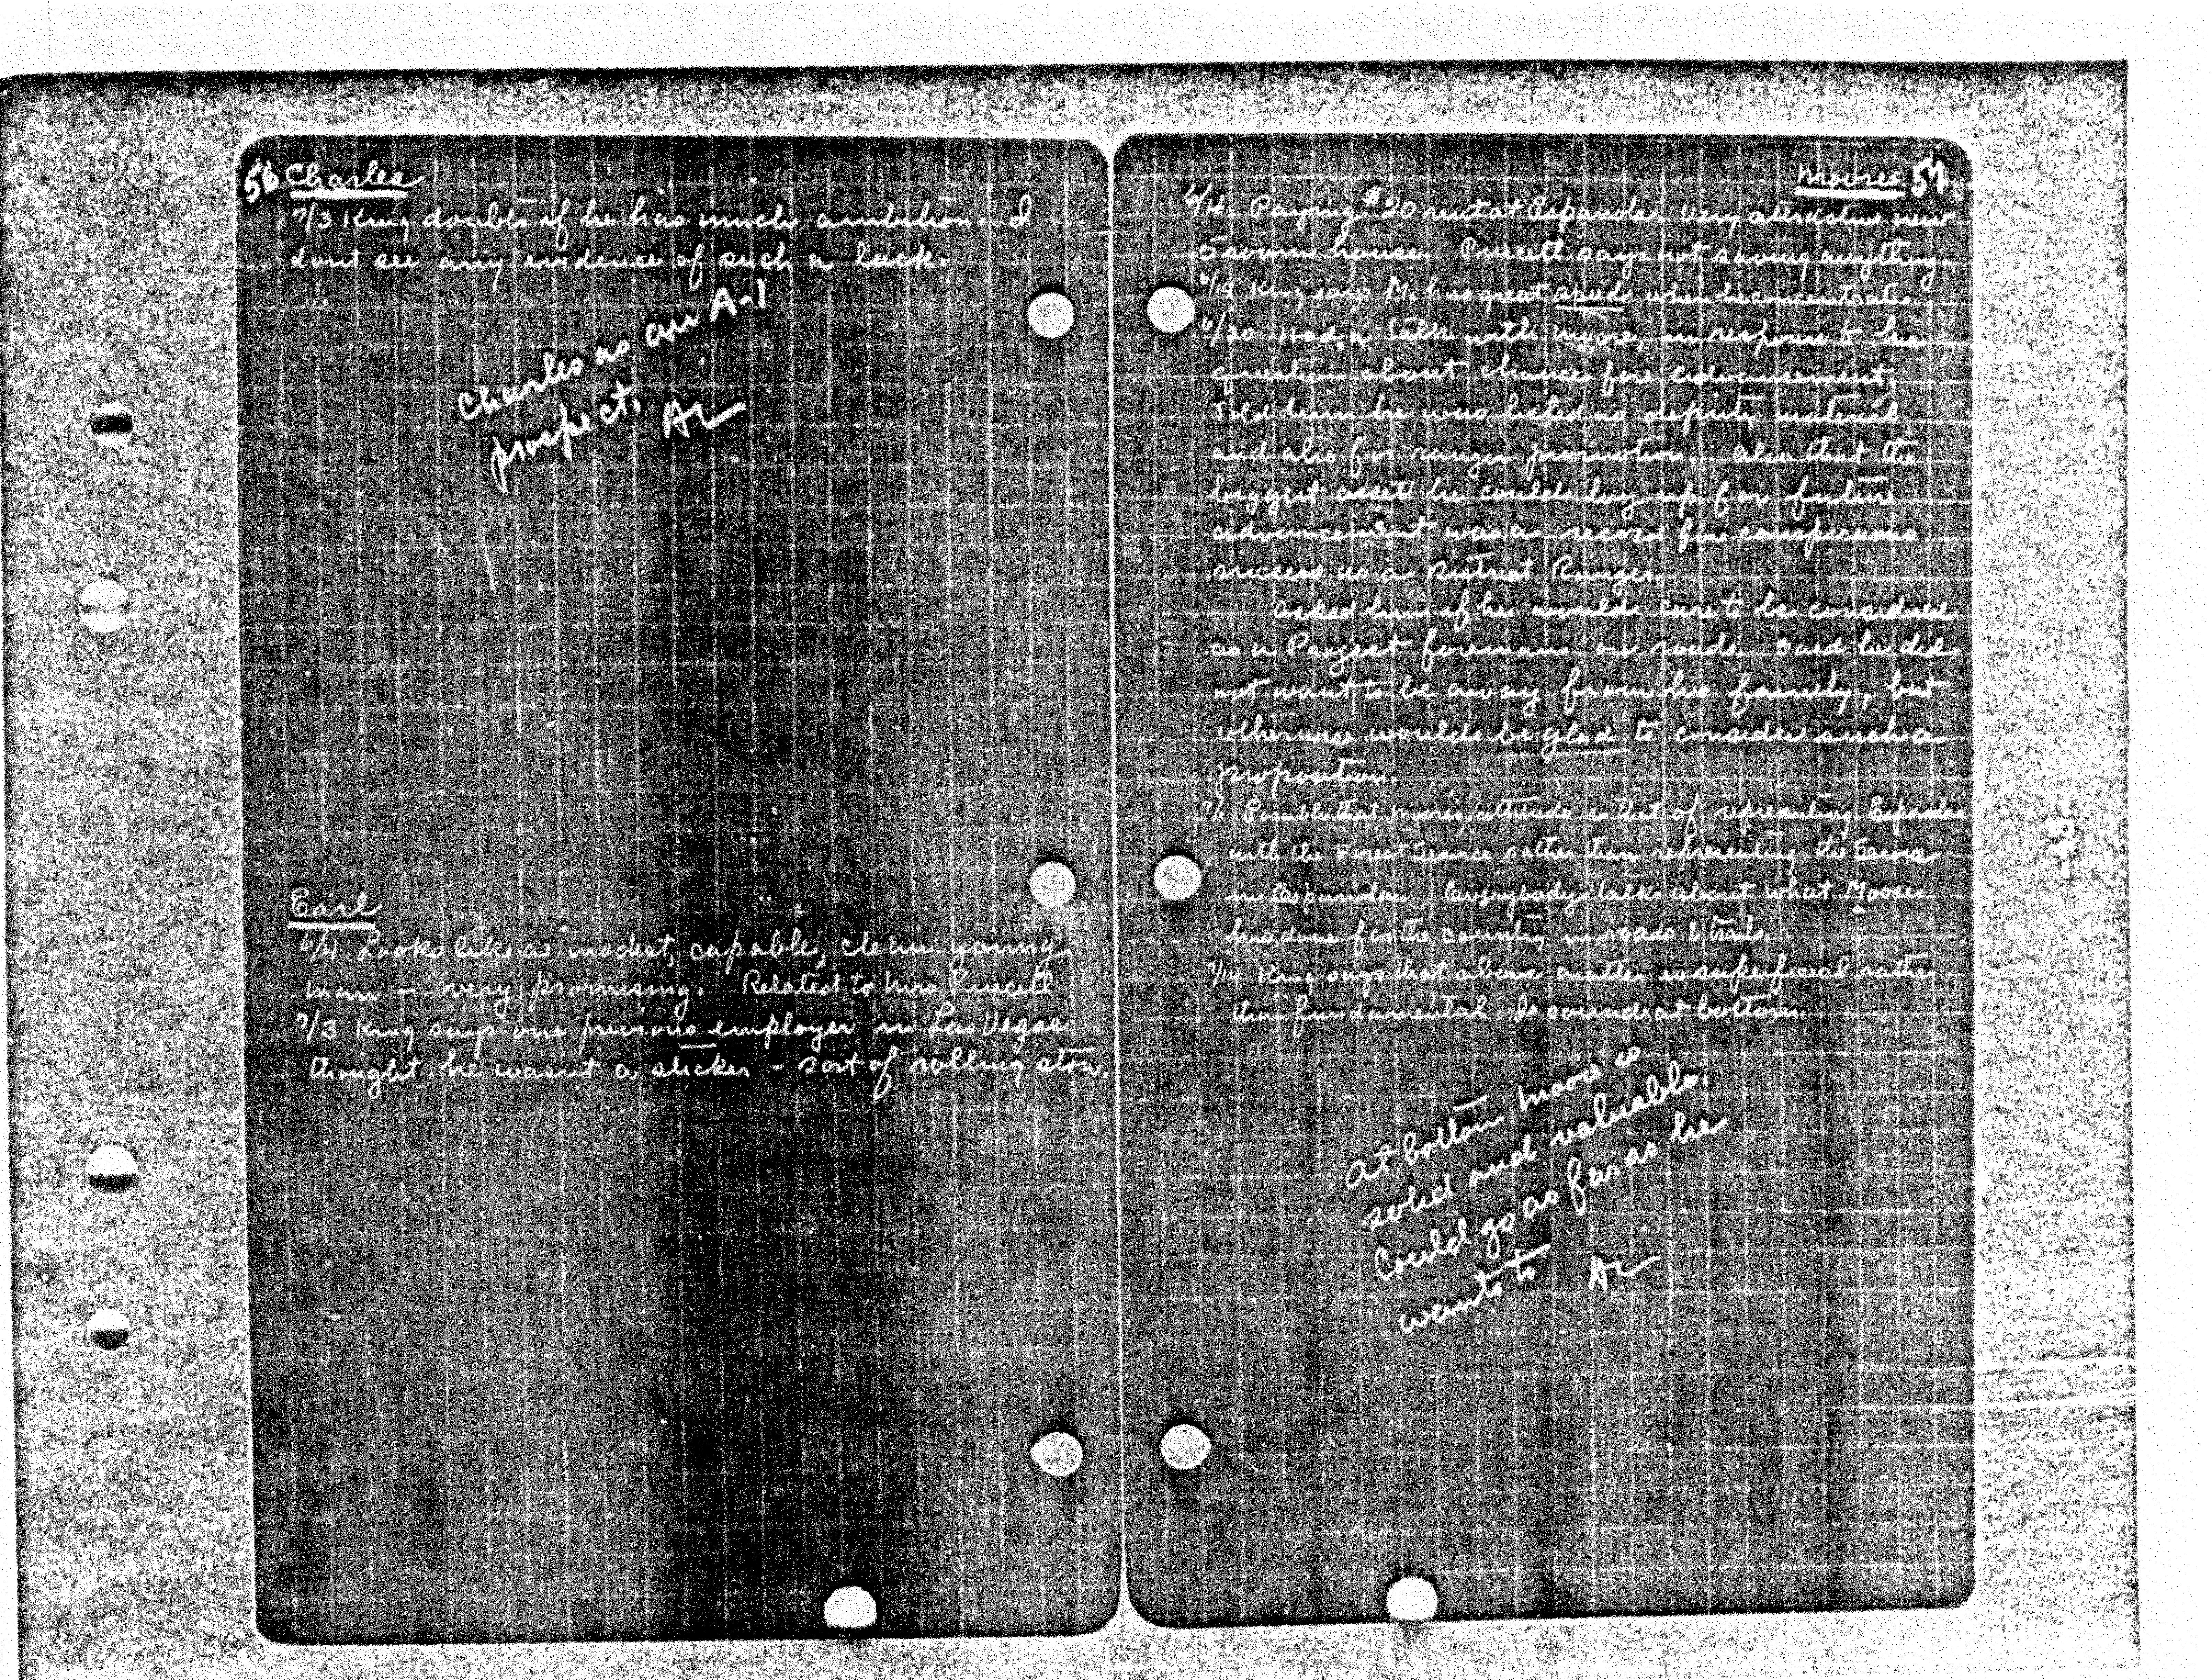 56 Charles
7/3 King doubts if he has much ambition. I
dont see any evidence of such a lack.
Charles is an A-1
prospect. AL
Earl
6/4 Looks like a modest, capable, clean young
man - very promising. Related to Mrs Purcell
7/3 King says one previous employer in Las Vegas
thought he wasnt a sticker - sort of rolling stone.
Moore 57
6/4 Paying $20 rent at Espanola. Very attractive new
5 room house. Purcell says not saving anything.
6/14 King says M. has great speed when he concentrates
6/20 Had a talk with Moore, in response to his
question about chances for advancement,
Told him he was listed as deputy material
and also for ranger promotion. Also that the
biggest asset he could lay up for future
advancement was a record for conspicuous
success as a District Ranger.
Asked him if he would care to be considered
as a Project foreman on roads. Said he did
not want to be away from his family, but
otherwise would be glad to consider such a
proposition.
7/1 Possible that Moore's attitude is that of representing Espanola
with the Forest Service rather than representing the Service
in Espanola. Everybody talks about what Moore
has done for the country in roads & trails.
7/14 King says that above matter is superficial rather
than fundamental. Is sound at bottom.
At bottom Moore is
solid and valuable.
Could go as far as he
wants to AL